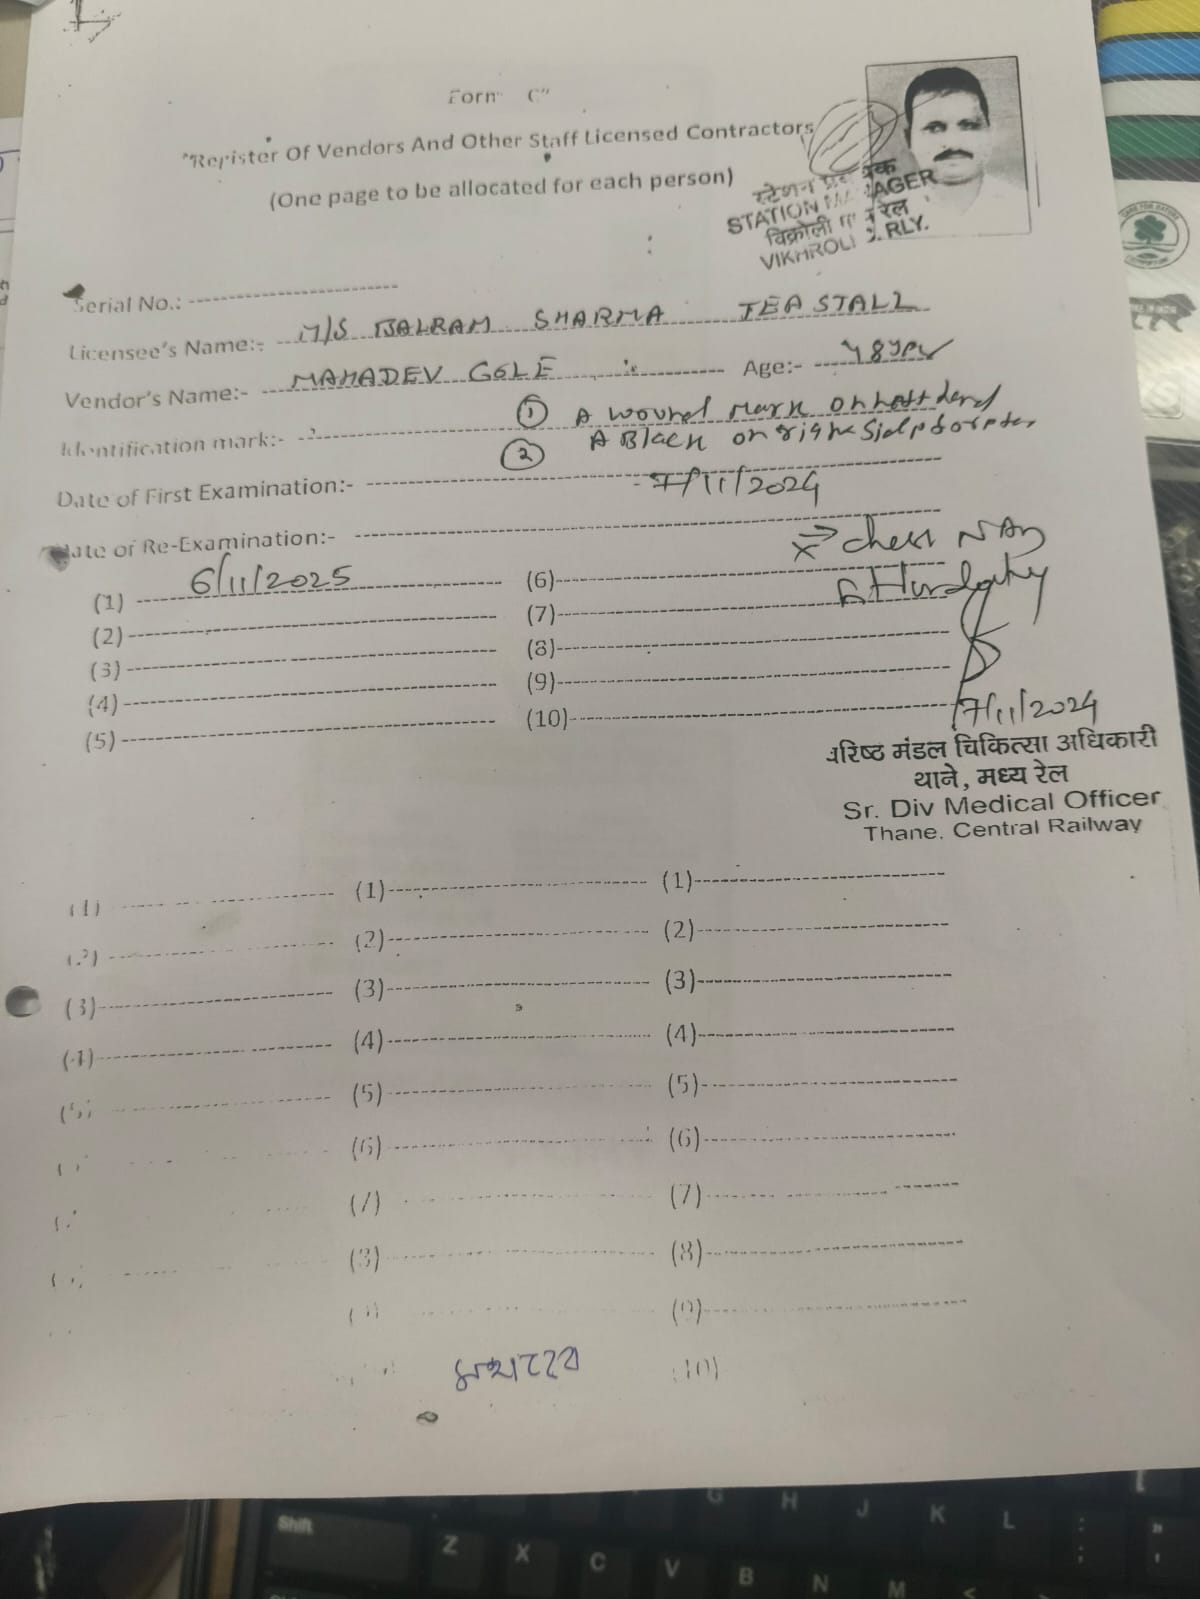 Form "C"
"Register Of Vendors And Other Staff Licensed Contractors
(One page to be allocated for each person)
स्टेशन
STATION MANAGER
विक्रोली रेल
VIKHROLI C. RLY.
Serial No.:
Licensee's Name:- M/S BALRAM SHARMA TEA STALL
Vendor's Name:- MAHADEV GOLE Age:- 48 yrs
Identification mark:- ① A wound mark on hand
② A Black on right side
Date of First Examination:- 7/11/2024
Date of Re-Examination:-
(1) 6/11/2025 (6)
(2) (7)
(3) (8)
(4) (9)
(5) (10)
7/11/2024
वरिष्ठ मंडल चिकित्सा अधिकारी
थाने, मध्य रेल
Sr. Div Medical Officer
Thane. Central Railway
(1) (1) (1)
(2) (2) (2)
(3) (3) (3)
(4) (4) (4)
(5) (5) (5)
(6) (6)
(7) (7)
(8) (8)
(9)
(10)
Shift
G H J K L
Z X C V B N M